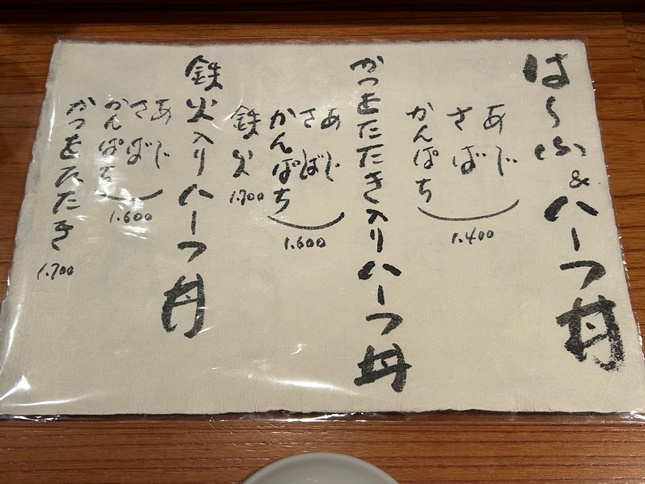 はーふ&ハーフ丼
あじ
さば
かんぱち
1.400
かつをたたき入りハーフ丼
あじ
さば
かんぱち
1.600
鉄火
1.700
鉄火入りハーフ丼
あじ
さば
かんぱち
1.600
かつをたたき
1.700